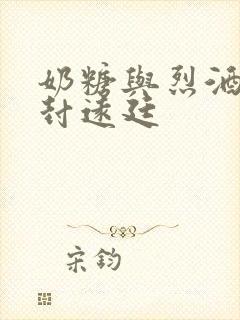 奶糖與烈酒
封遠廷
宋鈞